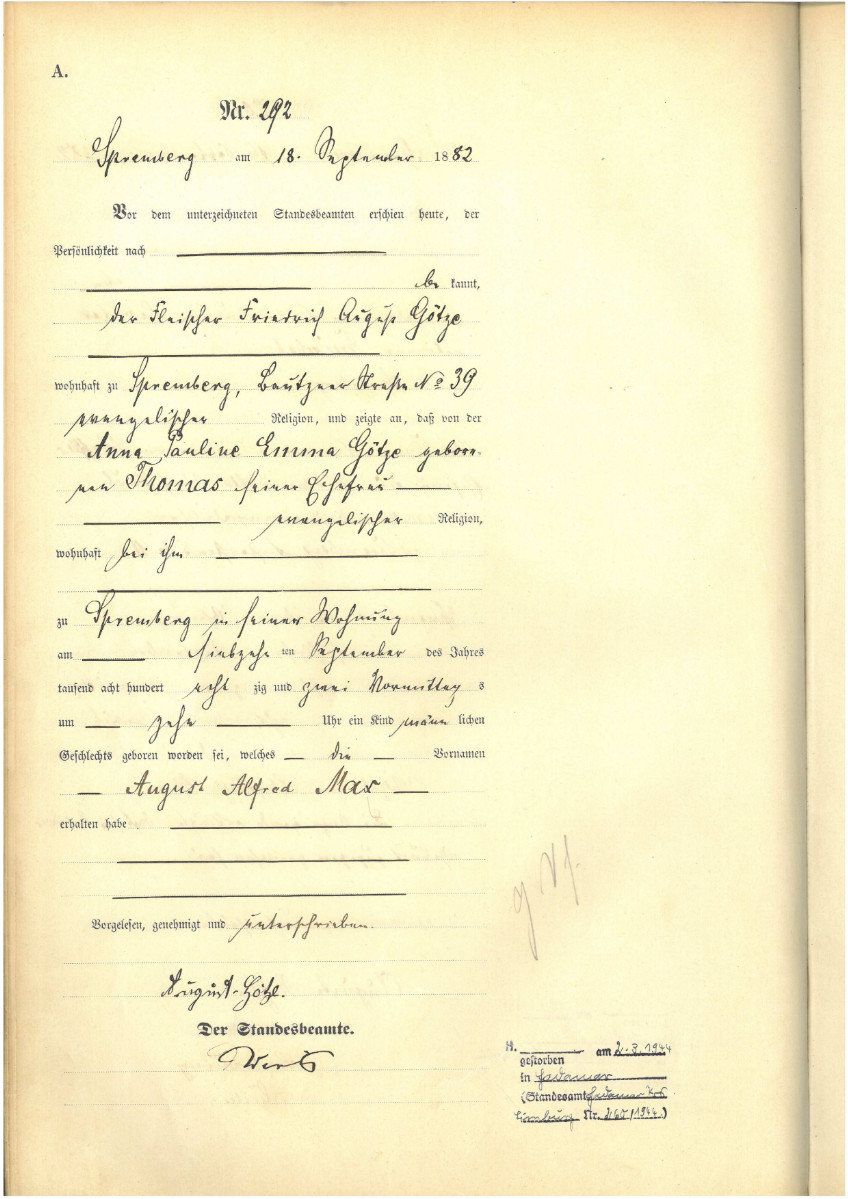 A.
Nr. 292
Spremberg am 18. September 1882
Vor dem unterzeichneten Standesbeamten erschien heute, der
Persönlichkeit nach
be kannt,
der Fleischer Friedrich August Götze
wohnhaft zu Spremberg, Bautzner Straße No 39
evangelischer Religion, und zeigte an, daß von der
Anna Pauline Emma Götze gebore-
nen Thomas seiner Ehefrau
evangelischer Religion,
wohnhaft bei ihm
zu Spremberg in seiner Wohnung
am siebzehn ten September des Jahres
tausend acht hundert acht zig und zwei Vormittag s
um zehn Uhr ein Kind männ lichen
Geschlechts geboren worden sei, welches die Vornamen
August Alfred Max
erhalten habe
Vorgelesen, genehmigt und unterschrieben.
August Götze.
Der Standesbeamte.
H. gestorben am 2.3.1944
in Hadamar
(Standesamt Hadamar Krs
Limburg Nr. 265/1944.)